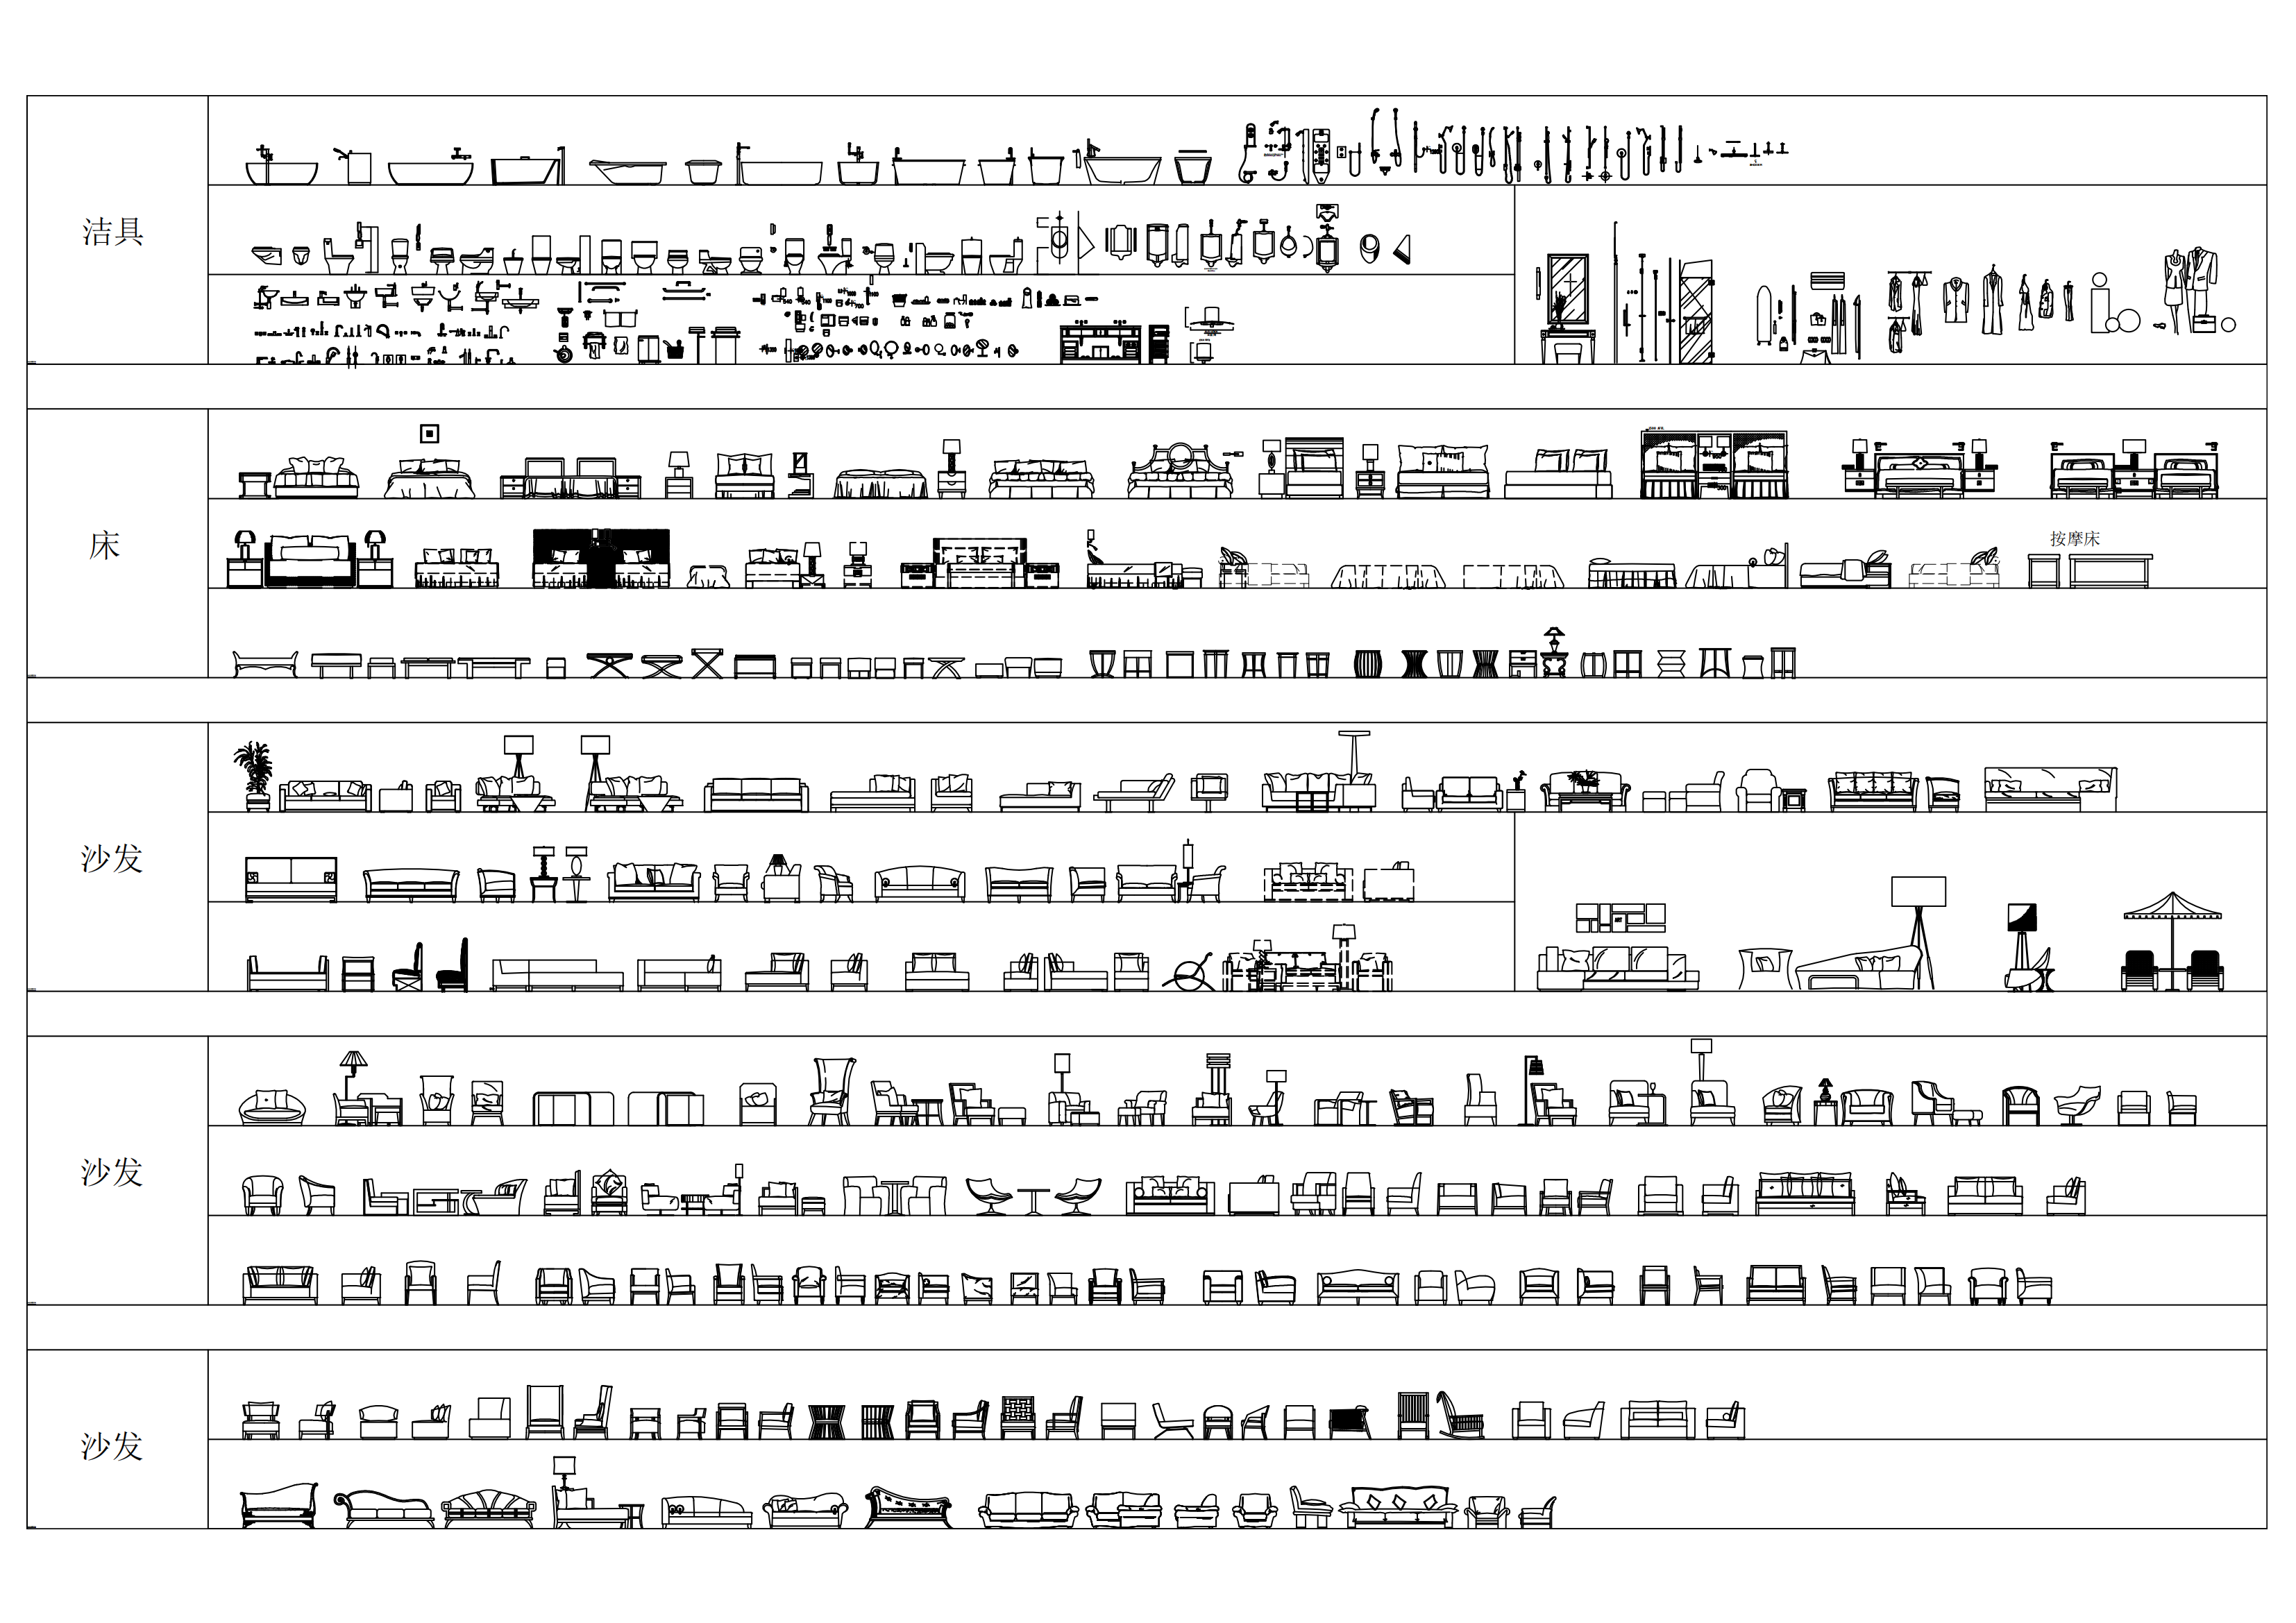 洁具
床
按摩床
沙发
ART
沙发
沙发